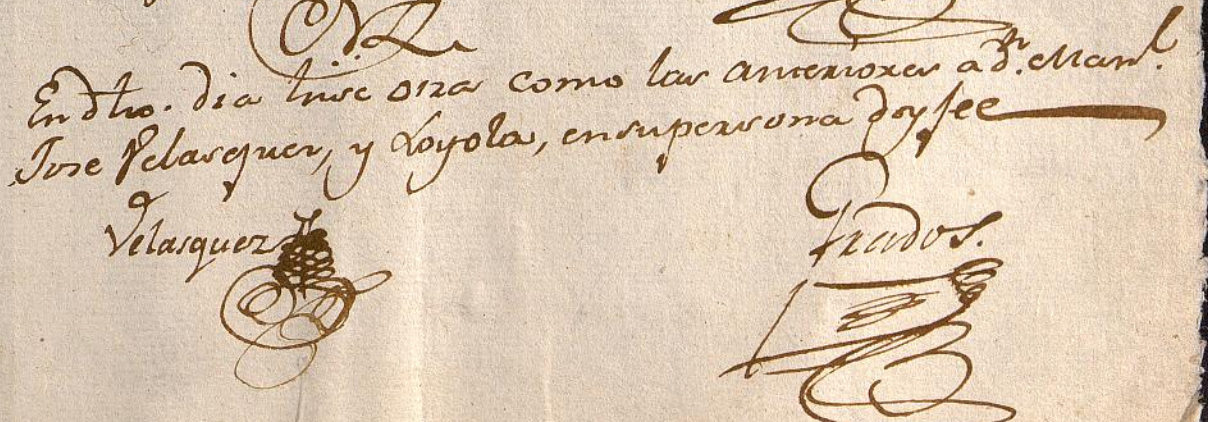 En dho. dia hise otra como las anteriores a dn. Manl.
Jose Velasquez, y Loyola, en su persona doy fee
Velasquez
Prados.